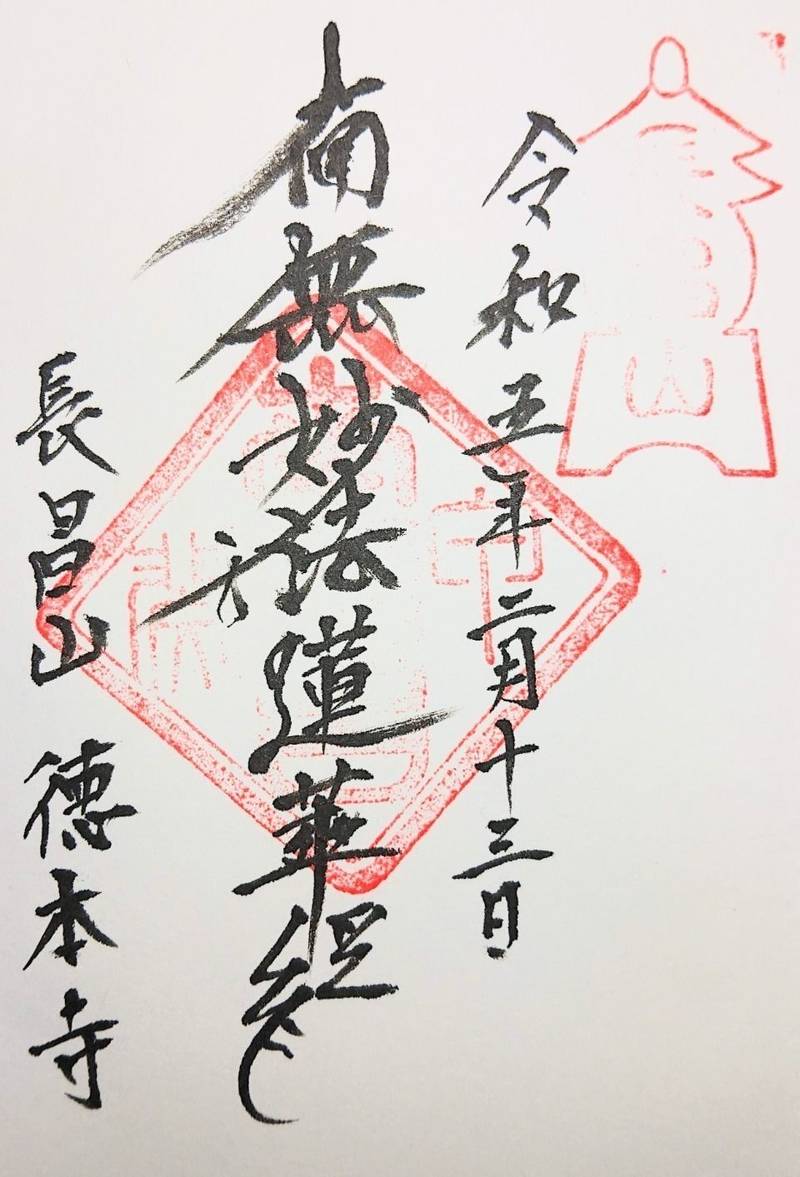 令和五年二月十三日
南無妙法蓮華経
長昌山 徳本寺